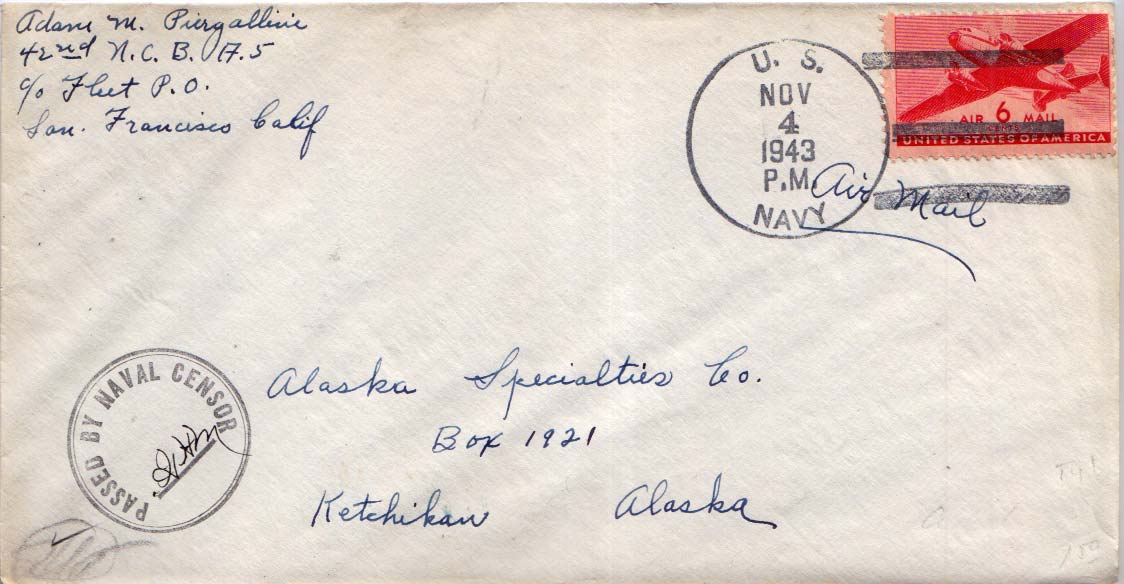 Adam M. Piergallini
42nd N.C.B. A.5
c/o Fleet P.O.
San. Francisco Calif
U. S.
NOV
4
1943
P.M.
NAVY
AIR 6 MAIL
CENTS
UNITED STATES OF AMERICA
Air Mail
PASSED BY NAVAL CENSOR
Alaska Specialties Co.
Box 1921
Ketchikan Alaska